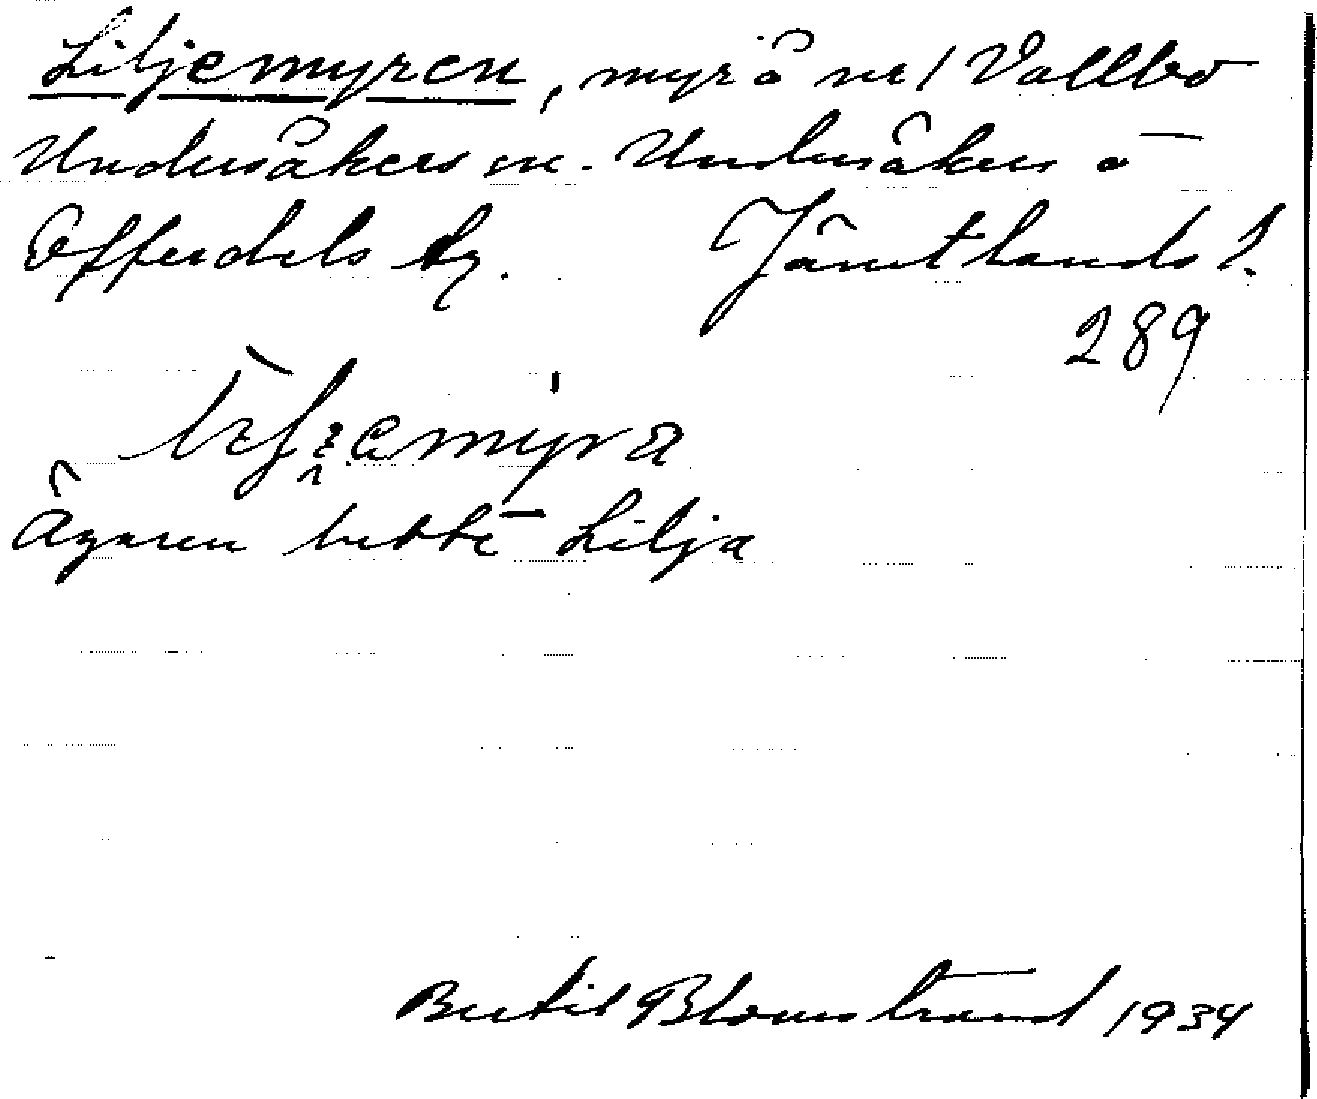 Liljemyren, myr å nr 1 Vallbo
Undersåkers sn. Undersåkers o
Offerdals tg. Jämtlands l.
289
Ägaren hette Lilja
Bertil Blomstrand 1934